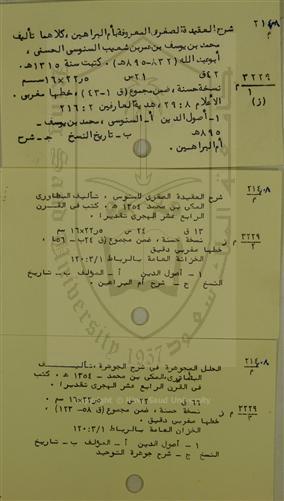 ٢١٤٫٠٨
م
شرح العقيدة الصغرى المعروفة بأم البراهين، كلاهما تأليف
محمد بن يوسف بن عمر بن شعيب السنوسي الحسني،
أبو عبدالله (٨٣٢-٨٩٥هـ). كتبت سنة ١٣١٥هـ.
٤٢ ق ٢١ س ٢٢٫٥×١٦ سم
نسخة حسنة، ضمن مجموع (ق ١-٤٣)، خطها مغربي.
الأعلام ٨: ٢٩، هدية العارفين ٢: ٢١٦
١- أصول الدين أ- السنوسي، محمد بن يوسف -
٨٩٥هـ ب- تاريخ النسخ ج- شرح
أم البراهين.
٣٢٢٩
١ م
(ز)
٢١٤٫٠٨
م
شرح العقيدة الصغرى للسنوسي، تأليف البطاوري
المكي بن محمد ١٣٥٤ هـ. كتب في القرن
الرابع عشر الهجري تقديرا.
١٣ ق ٢٤ س ٢٢٫٥×١٦ سم
نسخة حسنة، ضمن مجموع (ق ٤٤ب - ٥٦أ)
خطها مغربي دقيق
الخزانة العامة بالرباط ١٢٠:٣/١
١ - أصول الدين أ - المؤلف ب - تاريخ
النسخ ج - شرح أم البراهين.
٣٢٢٩
٢ م
٢١٤٫٠٨
م
الحلل المجوهرة في شرح الجوهرة، تأليف
البطاوري، المكي بن محمد - ١٣٥٤ هـ. كتب
في القرن الرابع عشر الهجري تقديرا.
٦٦ ق ٢٢ س ٢٢٫٥×١٦ سم
نسخة حسنة، ضمن مجموع (ق ٥٨ - ١٢٣)
خطها مغربي دقيق
الخزانة العامة بالرباط ١٢٠:٣/١
١ - أصول الدين أ - المؤلف ب - تاريخ
النسخ ج - شرح جوهرة التوحيد
٣٢٢٩
٣ م ز